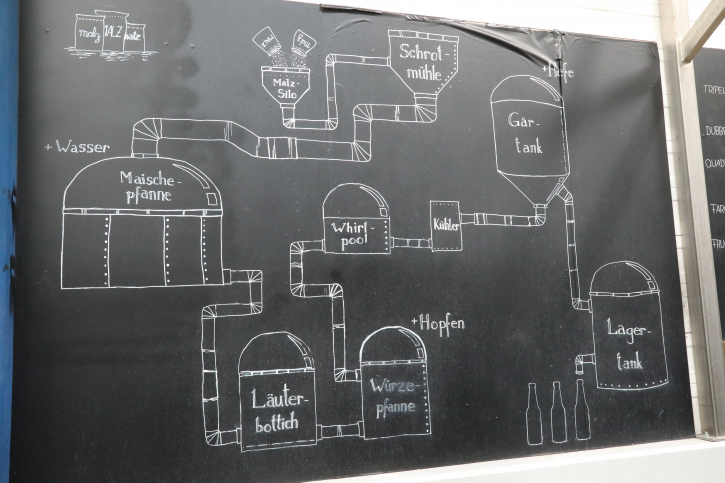 malz MALZ malz
malz malz
Malz-
Silo
Schrot-
mühle
+ Hefe
Gär-
tank
+ Wasser
Maische-
pfanne
Whirl-
pool
Kühler
+ Hopfen
Läuter-
bottich
Würze-
pfanne
Lager-
tank
TRIPEL
DUBBE
QUAD
FAR
FRU